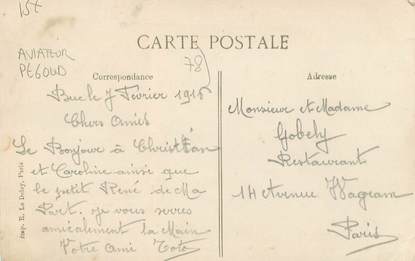 15€
AVIATEUR
PEGOUD
78
CARTE POSTALE
Correspondance
Adresse
Buc le 7 Fevrier 1916
Chers Amis
Le Bonjour à Christian
et Caroline ainsi que
le petit René de Ma
Part. Je vous serres
amicalement la Main
Votre ami Toto
Monsieur et Madame
Gobely
Restaurant
14 Avenue Wagram
Paris
Imp. E. Le Deley, Paris